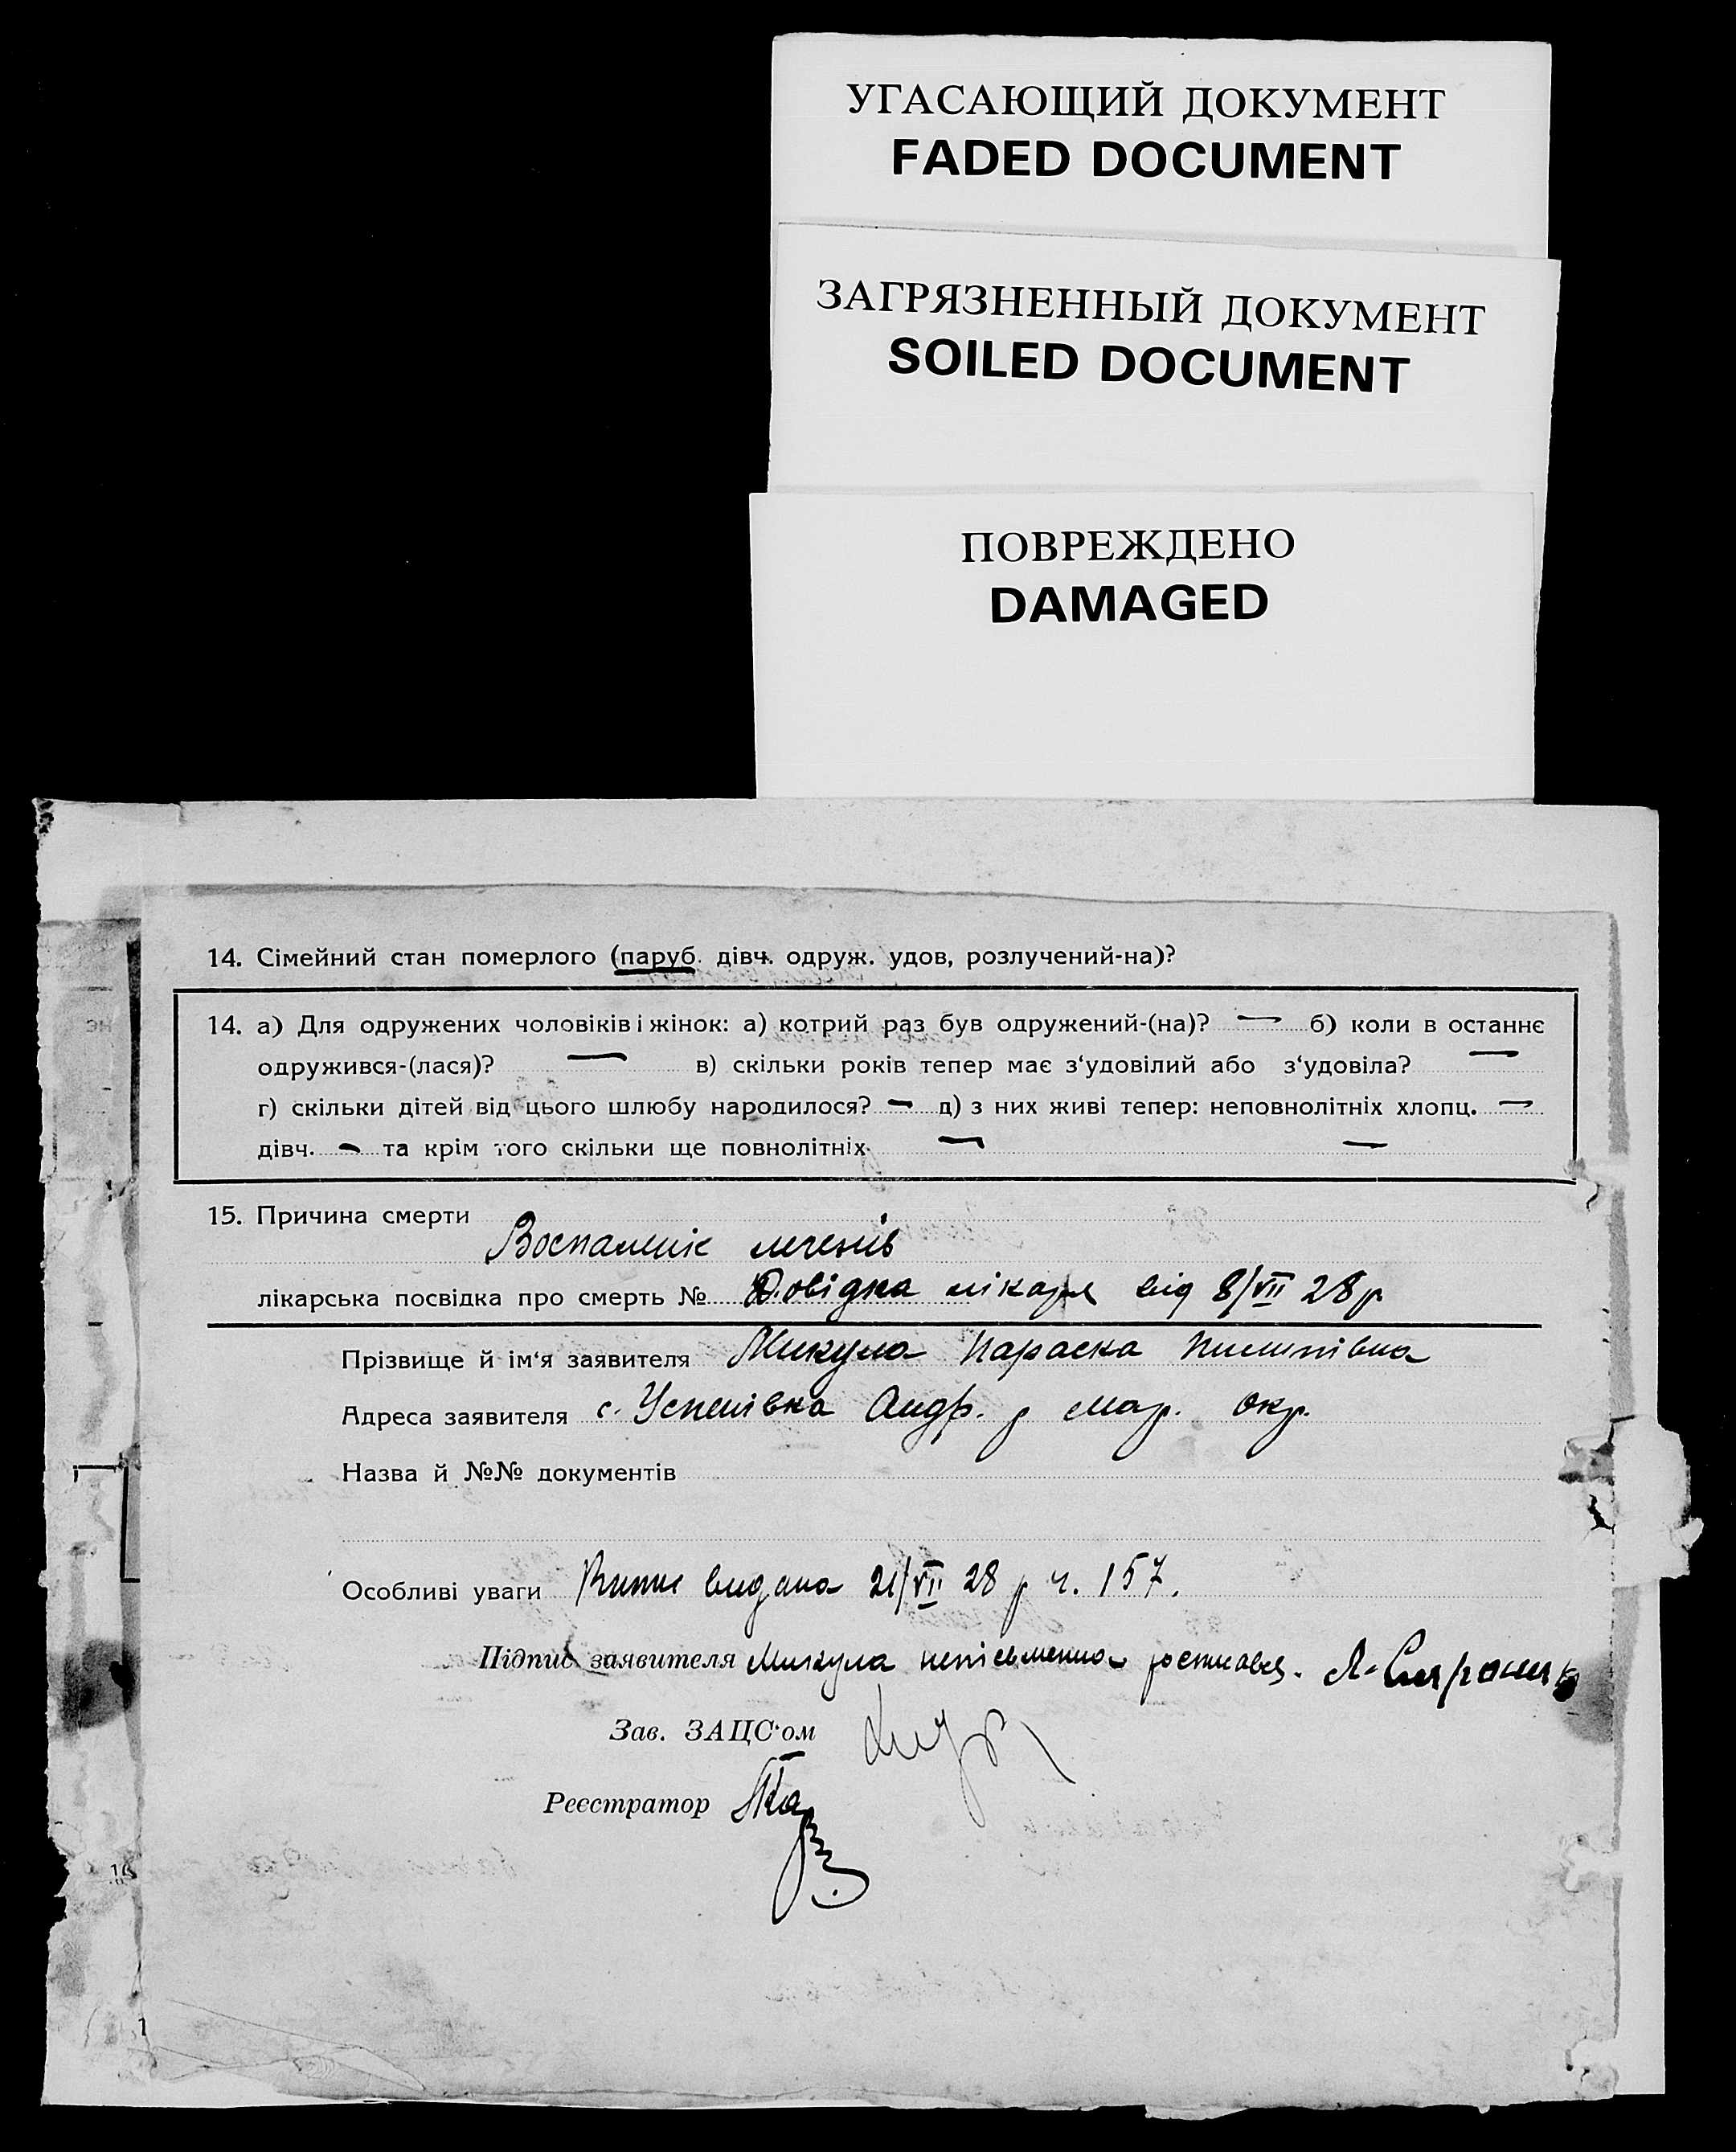 УГАСАЮЩИЙ ДОКУМЕНТ
FADED DOCUMENT
ЗАГРЯЗНЕННЫЙ ДОКУМЕНТ
SOILED DOCUMENT
ПОВРЕЖДЕНО
DAMAGED
14. Сімейний стан померлого (паруб. дівч. одруж. удов, розлучений-на)?
14. а) Для одружених чоловіків і жінок: а) котрий раз був одружений-(на)? — б) коли в останнє
одружився-(лася)? — в) скільки років тепер має з‘удовілий або з‘удовіла? —
г) скільки дітей від цього шлюбу народилося? — д) з них живі тепер: неповнолітніх хлопц. —
дівч. — та крім того скільки ще повнолітніх. — —
15. Причина смерти
Воспаленіє легенів
лікарська посвідка про смерть № Довідка лікаря від 8/VII 28 р.
Прізвище й ім‘я заявителя Микула Параска Пилипівна
Адреса заявителя с. Успенівка Андр. р Мар. окр.
Назва й №№ документів
Особливі уваги Випис видана 21/VII 28 р ч. 157.
Підпис заявителя Микула неписьменна
Зав. ЗАЦС‘ом
Реєстратор